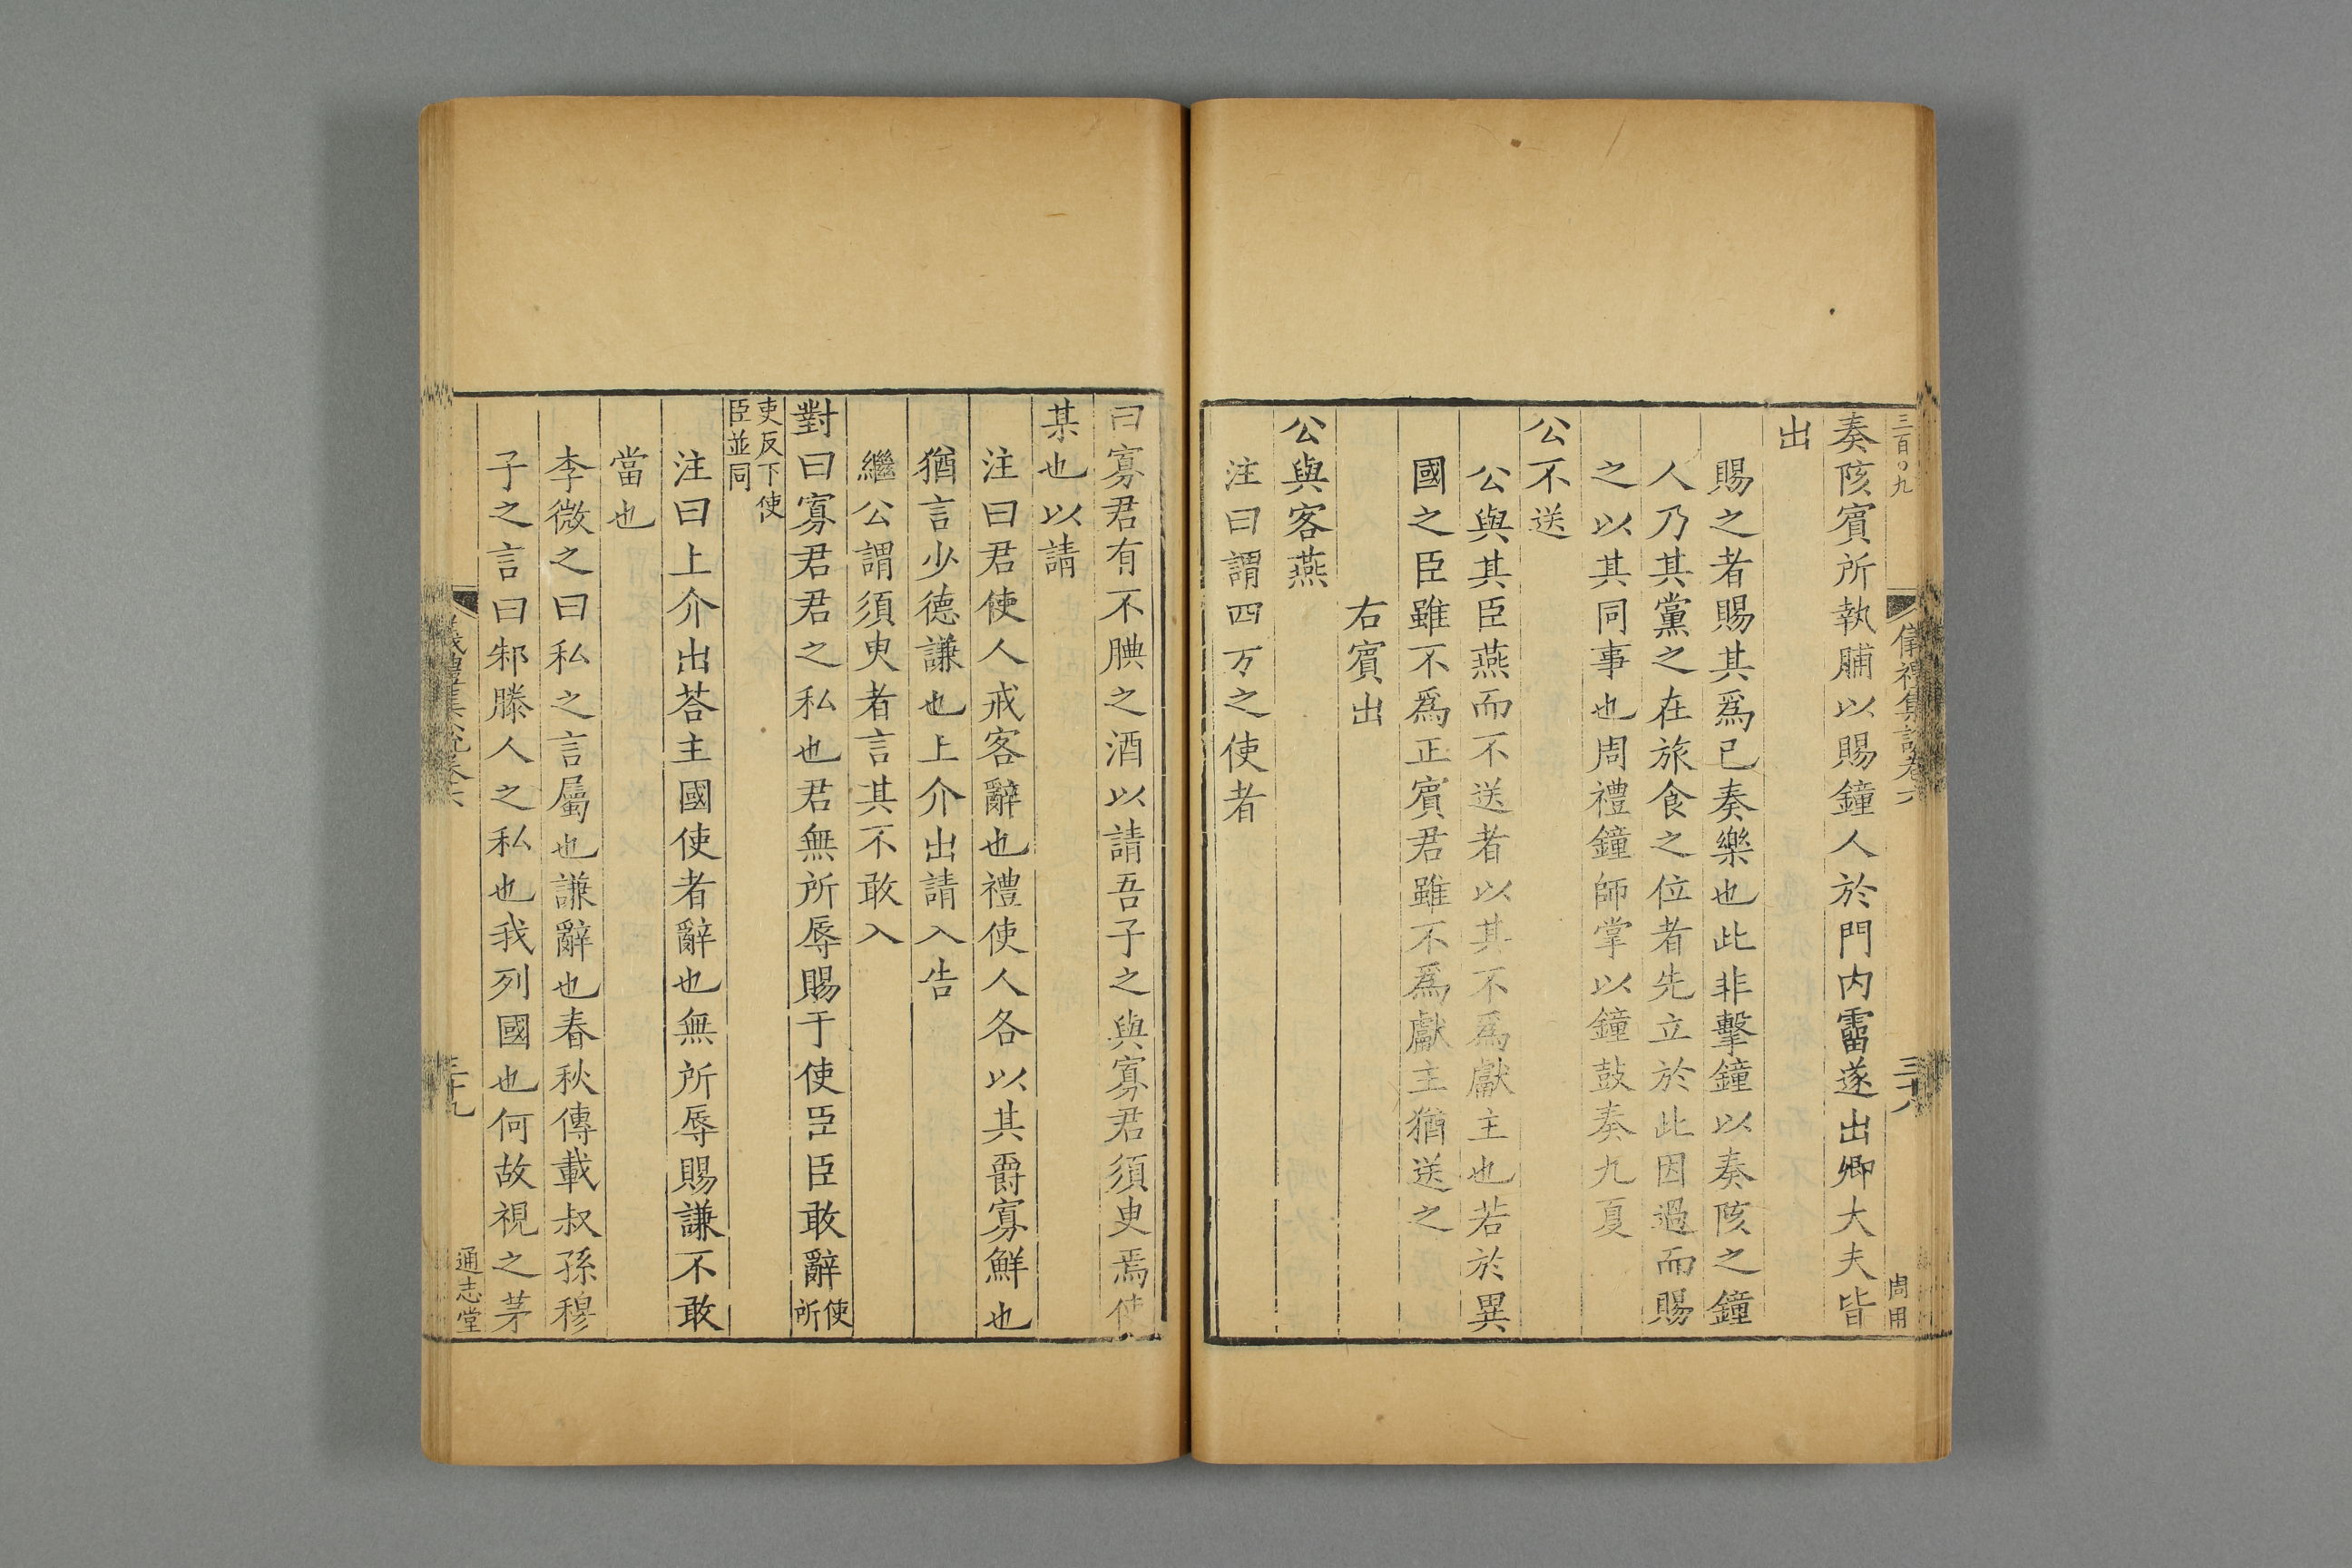 三百○九
儀禮集說卷六
三十八
周用
奏陔賓所執脯以賜鐘人於門內霤遂出卿大夫皆
出
賜之者賜其爲已奏樂也此非擊鐘以奏陔之鐘
人乃其黨之在旅食之位者先立於此因過而賜
之以其同事也周禮鐘師掌以鐘鼓奏九夏
公不送
公與其臣燕而不送者以其不爲獻主也若於異
國之臣雖不爲正賓君雖不爲獻主猶送之
右賓出
公與客燕
注曰謂四方之使者
曰寡君有不腆之酒以請吾子之與寡君須臾焉使
某也以請
注曰君使人戒客辭也禮使人各以其爵寡鮮也
猶言少德謙也上介出請入告
繼公謂須臾者言其不敢入
對曰寡君君之私也君無所辱賜于使臣臣敢辭使所
吏反下使臣並同
注曰上介出荅主國使者辭也無所辱賜謙不敢
當也
李微之曰私之言屬也謙辭也春秋傳載叔孫穆
子之言曰邾滕人之私也我列國也何故視之茅
儀禮集說卷六
三十九
通志堂